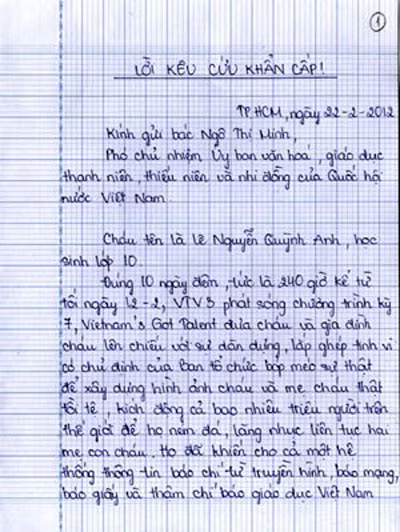 1
LỜI KÊU CỨU KHẨN CẤP!
TP.HCM, ngày 22-2-2012
Kính gửi bác Ngô Thị Minh,
Phó chủ nhiệm Ủy ban văn hoá, giáo dục
thanh niên, thiếu niên và nhi đồng của Quốc hội
nước Việt Nam.
Cháu tên là Lê Nguyễn Quỳnh Anh, học
sinh lớp 10.
Đúng 10 ngày đêm, tức là 240 giờ kể từ
tối ngày 12-2, VTV3 phát sóng chương trình kỳ
7, Vietnam's Got Talent đưa cháu và gia đình
cháu lên chiếu với sự dàn dựng, lắp ghép tinh vi
có chủ định của Ban tổ chức bóp méo sự thật
để xây dựng hình ảnh cháu và mẹ cháu thật
tồi tệ, kích động cả bao nhiêu triệu người trên
thế giới để họ ném đá, lăng nhục liên tục hai
mẹ con cháu. Họ đã khiến cho cả một hệ
thống thông tin báo chí từ truyền hình, báo mạng,
báo giấy và thậm chí báo giáo dục Việt Nam